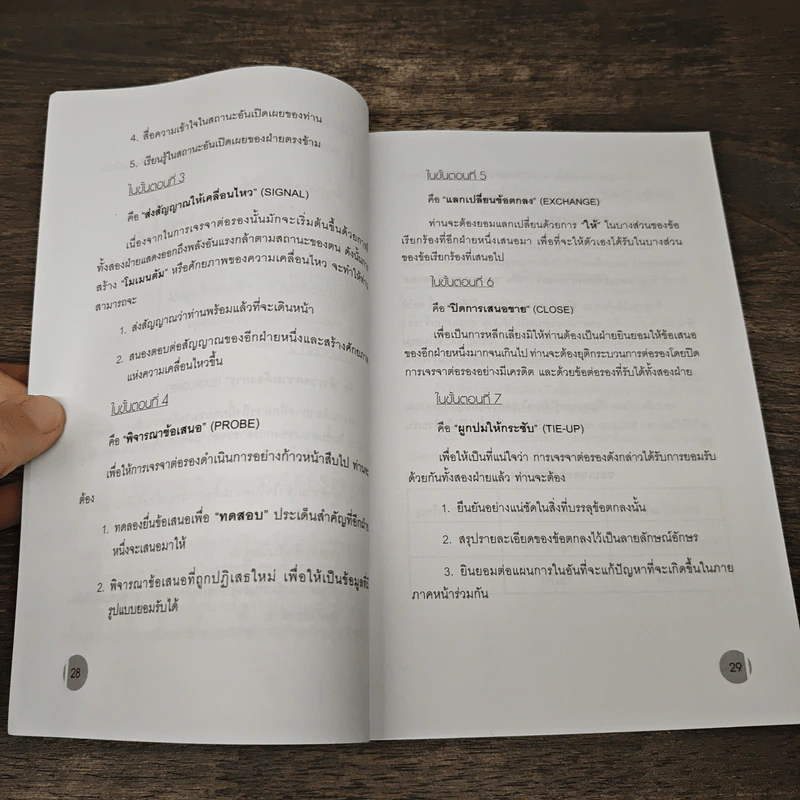 4. สื่อความเข้าใจในสถานะอันเปิดเผยของท่าน
5. เรียนรู้ในสถานะอันเปิดเผยของฝ่ายตรงข้าม
ในขั้นตอนที่ 3
คือ "ส่งสัญญาณให้เคลื่อนไหว" (SIGNAL)
เนื่องจากในการเจรจาต่อรองนั้นมักจะเริ่มต้นขึ้นด้วยการที่
ทั้งสองฝ่ายแสดงออกถึงพลังอันแรงกล้าตามสถานะของตน ดังนั้น
สร้าง "โมเมนตัม" หรือศักยภาพของความเคลื่อนไหว จะทำให้
สามารถจะ
1. ส่งสัญญาณว่าท่านพร้อมแล้วที่จะเดินหน้า
2. สนองตอบต่อสัญญาณของอีกฝ่ายหนึ่งและสร้างศักยภาพ
แห่งความเคลื่อนไหวขึ้น
ในขั้นตอนที่ 4
คือ "พิจารณาข้อเสนอ" (PROBE)
เพื่อให้การเจรจาต่อรองดำเนินการอย่างก้าวหน้าสืบไป
ต้อง
1. ทดลองยื่นข้อเสนอเพื่อ "ทดสอบ" ประเด็นสำคัญที่อีกฝ่าย
หนึ่งจะเสนอมาให้
2. พิจารณาข้อเสนอที่ถูกปฏิเสธใหม่ เพื่อให้เป็นข้อมูล
รูปแบบยอมรับได้
28
ในขั้นตอนที่ 5
คือ "แลกเปลี่ยนข้อตกลง" (EXCHANGE)
ท่านจะต้องยอมแลกเปลี่ยนด้วยการ "ให้" ในบางส่วนของข้อ
เรียกร้องที่อีกฝ่ายหนึ่งเสนอมา เพื่อที่จะให้ตัวเองได้รับในบางส่วน
ของข้อเรียกร้องที่เสนอไป
ในขั้นตอนที่ 6
คือ "ปิดการเสนอขาย" (CLOSE)
เพื่อเป็นการหลีกเลี่ยงมิให้ท่านต้องเป็นฝ่ายยินยอมให้ข้อเสนอ
ของอีกฝ่ายหนึ่งมากจนเกินไป ท่านจะต้องยุติกระบวนการต่อรองโดยปิด
การเจรจาต่อรองอย่างมีเครดิต และด้วยข้อต่อรองที่รับได้ทั้งสองฝ่าย
ในขั้นตอนที่ 7
คือ "ผูกปมให้กระชับ" (TIE-UP)
เพื่อให้เป็นที่แน่ใจว่า การเจรจาต่อรองดังกล่าวได้รับการยอมรับ
ด้วยกันทั้งสองฝ่ายแล้ว ท่านจะต้อง
1. ยืนยันอย่างแน่ชัดในสิ่งที่บรรลุข้อตกลงนั้น
2. สรุปรายละเอียดของข้อตกลงไว้เป็นลายลักษณ์อักษร
3. ยินยอมต่อแผนการในอันที่จะแก้ปัญหาที่จะเกิดขึ้นในภาย
ภาคหน้าร่วมกัน
29